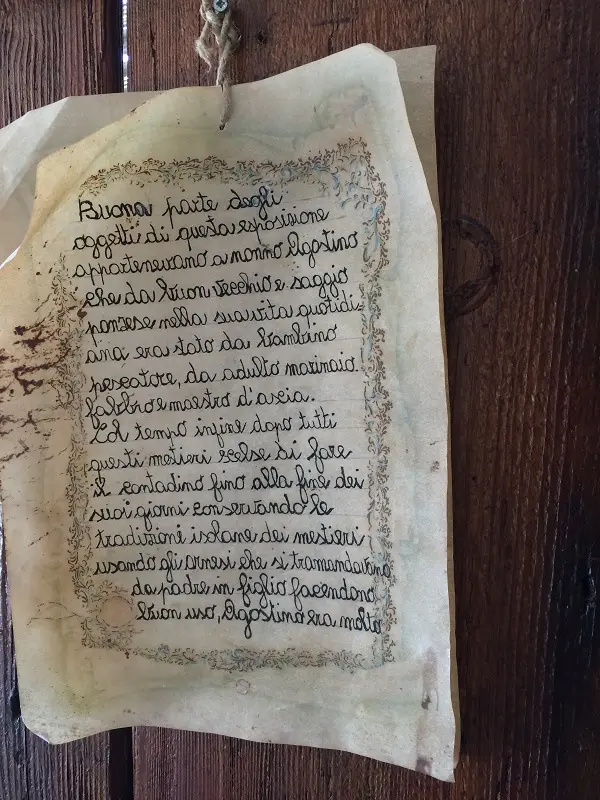 Buona parte degli
oggetti di questa esposizione
appartenevano a nonno Agostino
che da buon vecchio e saggio
ponzese nella sua vita quotidi
ana era stato da bambino
pescatore, da adulto marinaio
fabbro e maestro d'ascia.
Col tempo infine dopo tutti
questi mestieri scelse di fare
il contadino fino alla fine dei
suoi giorni conservando le
tradizioni isolane dei mestieri
usando gli arnesi che si tramandavano
da padre in figlio facendono
buon uso, Agostino era molto